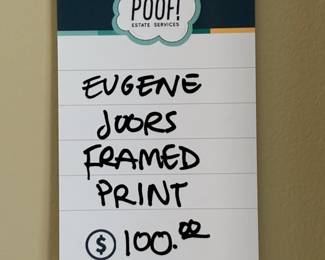 POOF!
ESTATE SERVICES
EUGENE
JOORS
FRAMED
PRINT
$ 100.00